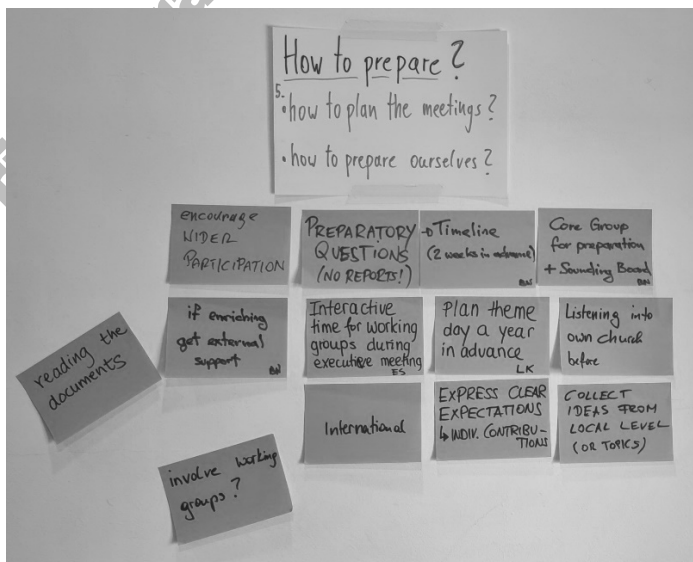 How to prepare?
5.
• how to plan the meetings?
• how to prepare ourselves?
encourage
WIDER
PARTICIPATION
PREPARATORY
QUESTIONS
(NO REPORTS!)
→ Timeline
(2 weeks in advance)
BW
Core Group
for preparation
+ Sounding Board
BW
reading the
documents
if enriching
get external
support
BW
Interactive
time for working
groups during
executive meeting
ES
Plan theme
day a year
in advance
LK
Listening into
own church
before
International
EXPRESS CLEAR
EXPECTATIONS
↳ INDIV. CONTRIBU-
TIONS
COLLECT
IDEAS FROM
LOCAL LEVEL
(OR TOPICS)
involve working
groups?